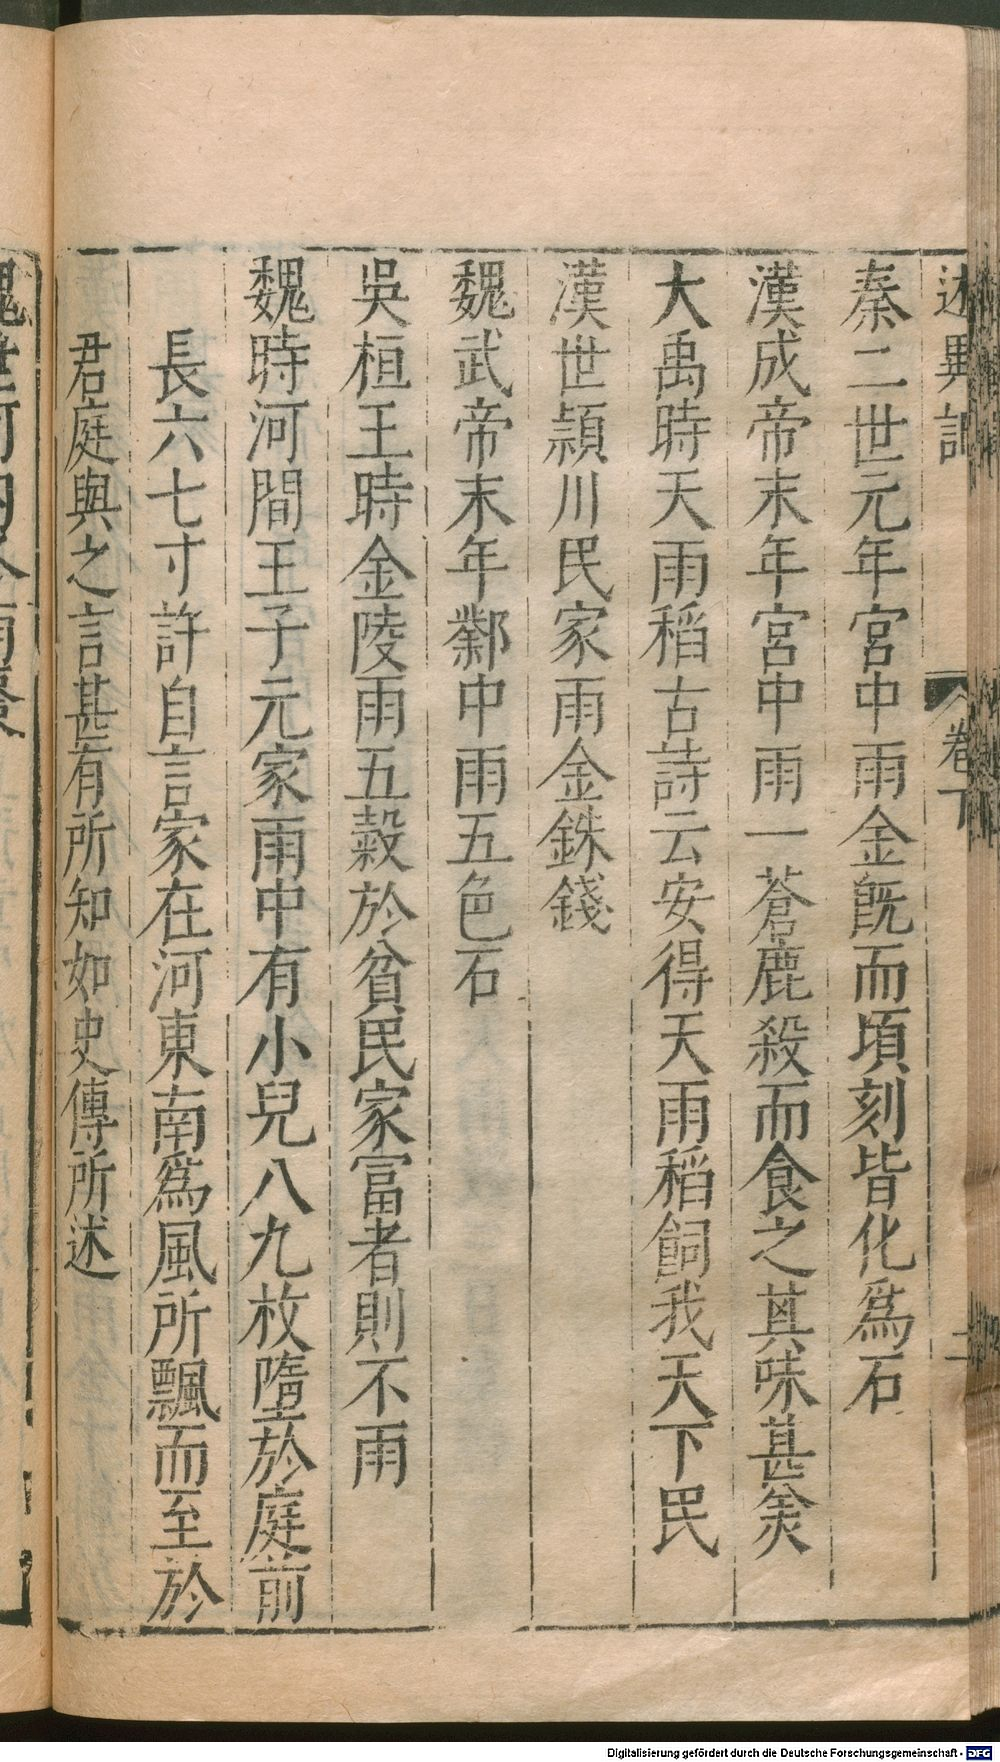 述異記 卷下 二
秦二世元年宮中雨金旣而頃刻皆化爲石
漢成帝末年宮中雨一蒼鹿殺而食之其味甚美
大禹時天雨稻古詩云安得天雨稻飼我天下民
漢世潁川民家雨金銖錢
魏武帝末年鄴中雨五色石
吳桓王時金陵雨五穀於貧民家富者則不雨
魏時河間王子元家雨中有小兒八九枚墮於庭前
長六七寸許自言家在河東南爲風所飄而至於
君庭與之言甚有所知如史傳所述
Digitalisierung gefördert durch die Deutsche Forschungsgemeinschaft - DFG